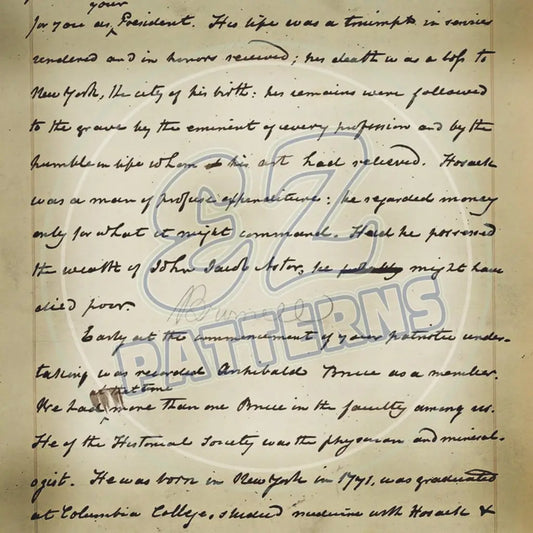 your
for you as President. His life was a triumph in service
rendered and in honors received; his death was a loss to
New York, the city of his birth: his remains were followed
to the grave by the eminent of every profession and by the
humble in life whom his art had relieved. Hosack
was a man of profuse expenditure: he regarded money
only for what it might command. Had he possessed
the wealth of John Jacob Astor, he probably might have
died poor.
Early at the commencement of your patriotic under-
taking was recorded Archibald Bruce as a member.
at the time
We had more than one Bruce in the faculty among us.
He of the Historical Society was the physician and mineral-
ogist. He was born in New York in 1771, was graduated
at Columbia College, studied medicine with Hosack &
EZ
PATTERNS